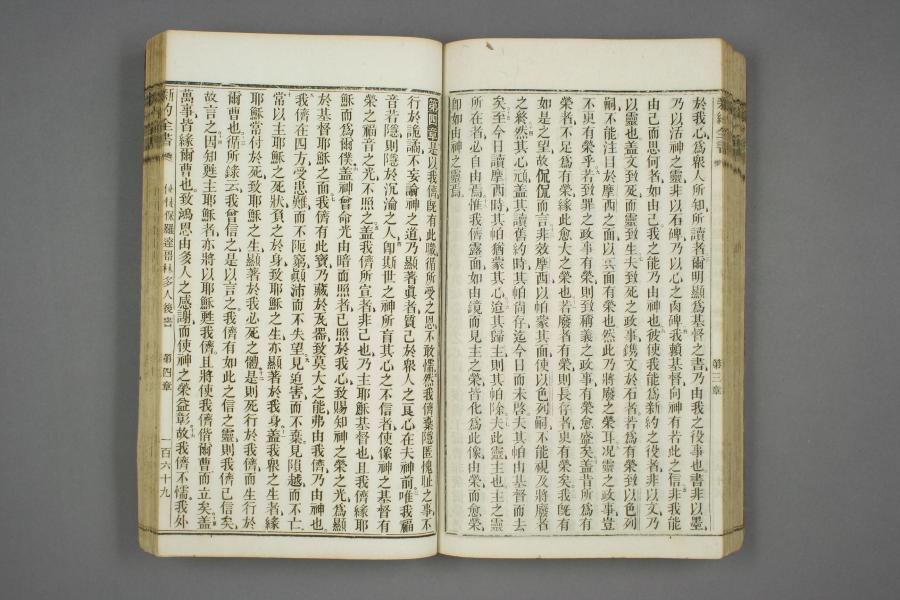 於我心、爲衆人所知所讀者、爾明顯爲基督之書、乃由我之役事也、書非以墨、
乃以活神之靈、非以石碑、乃以心之肉碑、我賴基督、向神有若此之信、非我能
由己而思何者、如由己、我之能乃由神也、彼使我能爲新約之役者、非以文、乃
以靈也、蓋文致死、而靈致生、夫致死之政事、鐫文於石者、若爲有榮、致以色列
嗣、不能注目於摩西之面、以其面有榮也、然此乃將廢之榮耳、况靈之政事、豈
不更有榮乎、若致罪之政事有榮、則致稱義之政事、有榮愈盛矣、蓋昔所爲有
榮者、不足爲有榮、緣此愈大之榮也、若廢者有榮、則長存者更有榮矣、我旣有
如是之望、故侃侃而言、非效摩西以帕蒙其面、使以色列嗣、不能視及將廢者
之終、然其心頑、蓋其讀舊約時、其帕尙存、迄今日而未啓、夫其帕由基督而去
矣、至今日讀摩西時、其帕猶蒙其心、迨其歸主、則其帕除、夫此靈主也、主之靈
所在者、必自由焉、惟我儕露面、如由鏡而見主之榮、皆化爲此像、由榮而愈榮、
卽如由神之靈焉、
第三章
第四章 是以我儕旣有此職、循所受之恩、不敢懦然、我儕棄隱匿愧耻之事、不
行於詭譎、不妄論神之道、乃顯著眞者、質己於衆人之良心、在夫神前、唯我福
音若隱、則隱於沉淪之人、卽斯世之神、所盲其心之不信者、使像神之基督有
榮之福音之光、不照之、蓋我儕所宣者非己也、乃主耶穌基督也、且我儕緣耶
穌而爲爾僕、蓋神曾命光由暗而照者、已照於我心、致賜知神之榮之光、爲顯
於基督耶穌之面、我儕有此寶、乃藏於瓦器、致莫大之能、弗由我儕、乃由神也、
我儕在四方受患難、而不阨窮、顚沛而不失望、見迫害而不棄、見隕越而不亡、
常以主耶穌之死狀、負之於身、致耶穌之生、亦顯著於我身、蓋我衆之生者、緣
耶穌常付於死、致耶穌之生、顯著於我必死之體、是則死行於我儕、而生行於
爾曹也、循所錄云、我曾信之、是以言之、我儕有如此之信之靈、則我儕已信矣、
故言之、因知甦主耶穌者、亦將以耶穌甦我儕、且將使我儕偕爾曹而立矣、蓋
萬事皆緣爾曹也、致鴻恩由多人之感謝、而使神之榮益彰、故我儕不懦、我外
新約全書 使徒保羅達哥林多人後書 第四章 一百六十九